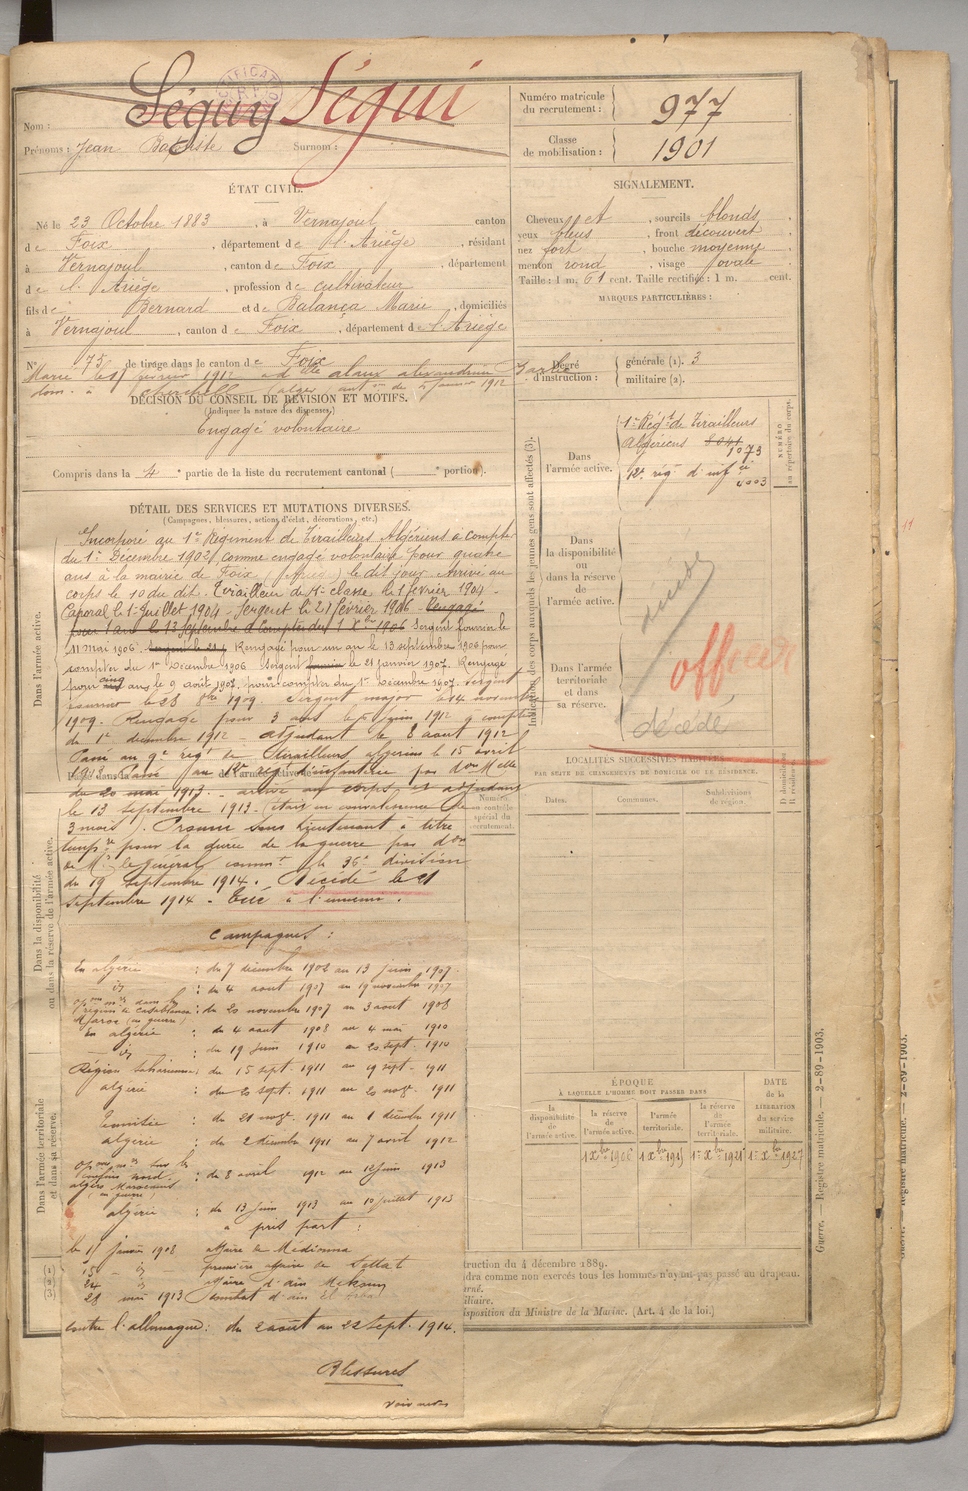 Séguy Ségui
Nom :
Prénoms : Jean Baptiste Surnom :
Numéro matricule du recrutement : 977
Classe de mobilisation : 1901
ÉTAT CIVIL.
Né le 23 Octobre 1883, à Vernajoul canton
de Foix, département de l'Ariège, résidant
à Vernajoul, canton de Foix, département
de l'Ariège, profession de cultivateur
fils de Bernard et de Balança Marie, domiciliés
à Vernajoul, canton de Foix, département de l'Ariège
N° 75 de tirage dans le canton de Foix
Marié le février 1912 à dlle alaux alexandrine
dom. à cherchell (alger aut on du janvier 1912
DÉCISION DU CONSEIL DE RÉVISION ET MOTIFS.
(Indiquer la nature des dispenses.)
Engagé volontaire
Compris dans la 4e partie de la liste du recrutement cantonal ( e portion).
SIGNALEMENT.
Cheveux et, sourcils blonds,
yeux bleus, front découvert
nez fort, bouche moyenne
menton rond, visage ovale
Taille : 1 m. 61 cent. Taille rectifiée : 1 m. cent.
MARQUES PARTICULIÈRES :
Degré d'instruction : générale (1). 3
militaire (2).
DÉTAIL DES SERVICES ET MUTATIONS DIVERSES.
(Campagnes, blessures, actions d'éclat, décorations, etc.)
Incorporé au 1er Régiment de Tirailleurs Algériens à compter
du 1er Décembre 1902, comme engagé volontaire pour quatre
ans à la mairie de Foix (Ariège) le dit jour. Arrivé au
corps le 10 du dit. Tirailleur de 1re classe le 1 février 1904 -
Caporal le 1er Juillet 1904 - Sergent le 21 février 1906 - Rengagé
pour 1 an le 13 septembre à compter du 1 Xbre 1906 Sergent fourrier le
11 mai 1906. Rengagé pour un an le 13 septembre 1906 pour
compter du 1er Décembre 1906 Sergent fourrier le 21 janvier 1907. Rengagé
pour cinq ans le 9 août 1907, pour compter du 1er Décembre 1907. Sergent
fourrier le 28 8bre 1909. Sergent major le 14 novembre
1909. Rengagé pour 3 ans le juin 1912 à compter
du 1er décembre 1912 - adjudant le 8 août 1912
Passé au 9e régt de Tirailleurs algériens le 15 avril
1913. Passé au 12e régt d'infanterie par don Melle
du 20 mai 1913 - arrivé au corps, et adjudant
le 13 septembre 1913. (était en convalescence de
3 mois). Promu sous lieutenant à titre
tempre pour la durée de la guerre par don
de Mr le Général commt la 36e division
du 19 septembre 1914. Décédé le 21
septembre 1914 - Tué à l'ennemi.
Campagnes :
En algérie : du 7 décembre 1902 au 13 juin 1907.
- id : du 4 aout 1907 au 19 novembre 1907
région de Casablanca : du 20 novembre 1907 au 3 aout 1908
Maroc (en guerre)
En algérie : du 4 aout 1908 au 4 mai 1910
- id : du 19 juin 1910 au 20 sept. 1910
Région saharienne : du 15 sept. 1911 au 19 sept. 1911
algérie : du 20 sept. 1911 au 20 nov. 1911
Tunisie : du 21 nov. 1911 au 1 décembre 1911
algérie : du 2 décembre 1911 au 7 avril 1912
confins nord : du 8 avril 1912 au 12 juin 1913
algéro Marocains
(en guerre)
algérie : du 13 juin 1913 au 10 juillet 1913
a pris part :
le janvier 1908 affaire de Médiouna
15 - id - première affaire de Settat
24 id affaire d'ain Mekoun
28 mai 1913 Combat d'ain El Arba
contre l'allemagne : du 2 août au 22 sept. 1914.
Blessures
Dans l'armée active.
Dans la disponibilité ou dans la réserve de l'armée active.
Dans l'armée territoriale et dans sa réserve.
Indication des corps auxquels les jeunes gens sont affectés (3).
NUMÉRO au répertoire du corps.
Dans l'armée active.
1er Régt de Tirailleurs
Algériens 8041
1073
12e régt d'inf ie
4003
Dans la disponibilité ou dans la réserve de l'armée active.
Dans l'armée territoriale et dans sa réserve.
officier
décédé
LOCALITÉS SUCCESSIVES HABITÉES
PAR SUITE DE CHANGEMENTS DE DOMICILE OU DE RÉSIDENCE.
Numéro au contrôle spécial du recrutement.
Dates. Communes. Subdivisions de région. D domicile R résidence
ÉPOQUE
À LAQUELLE L'HOMME DOIT PASSER DANS
DATE de la LIBÉRATION du service militaire.
la disponibilité de l'armée active.
la réserve de l'armée active.
l'armée territoriale.
la réserve de l'armée territoriale.
1 Xbre 1906 1 Xbre 191 1er Xbre 1921 1er Xbre 1927
truction du 4 décembre 1889.
dra comme non exercés tous les hommes n'ayant pas passé au drapeau.
rné.
iliaire.
isposition du Ministre de la Marine. (Art. 4 de la loi.)
(1)
(2)
(3)
Guerre. — Registre matricule. — 2-89-1903.
Registre matricule. — 2-89-1903.